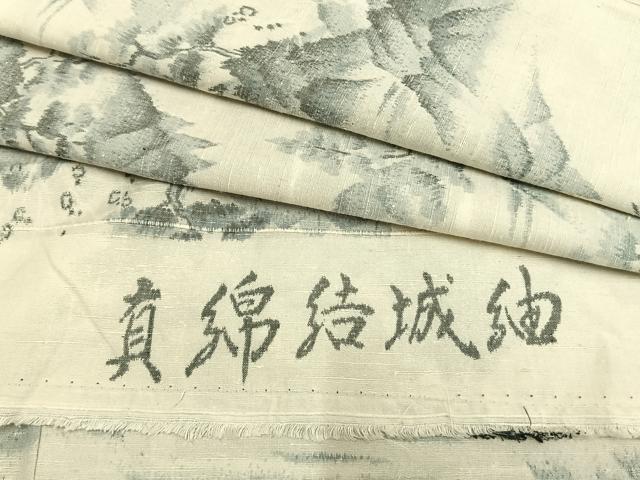 真綿結城紬